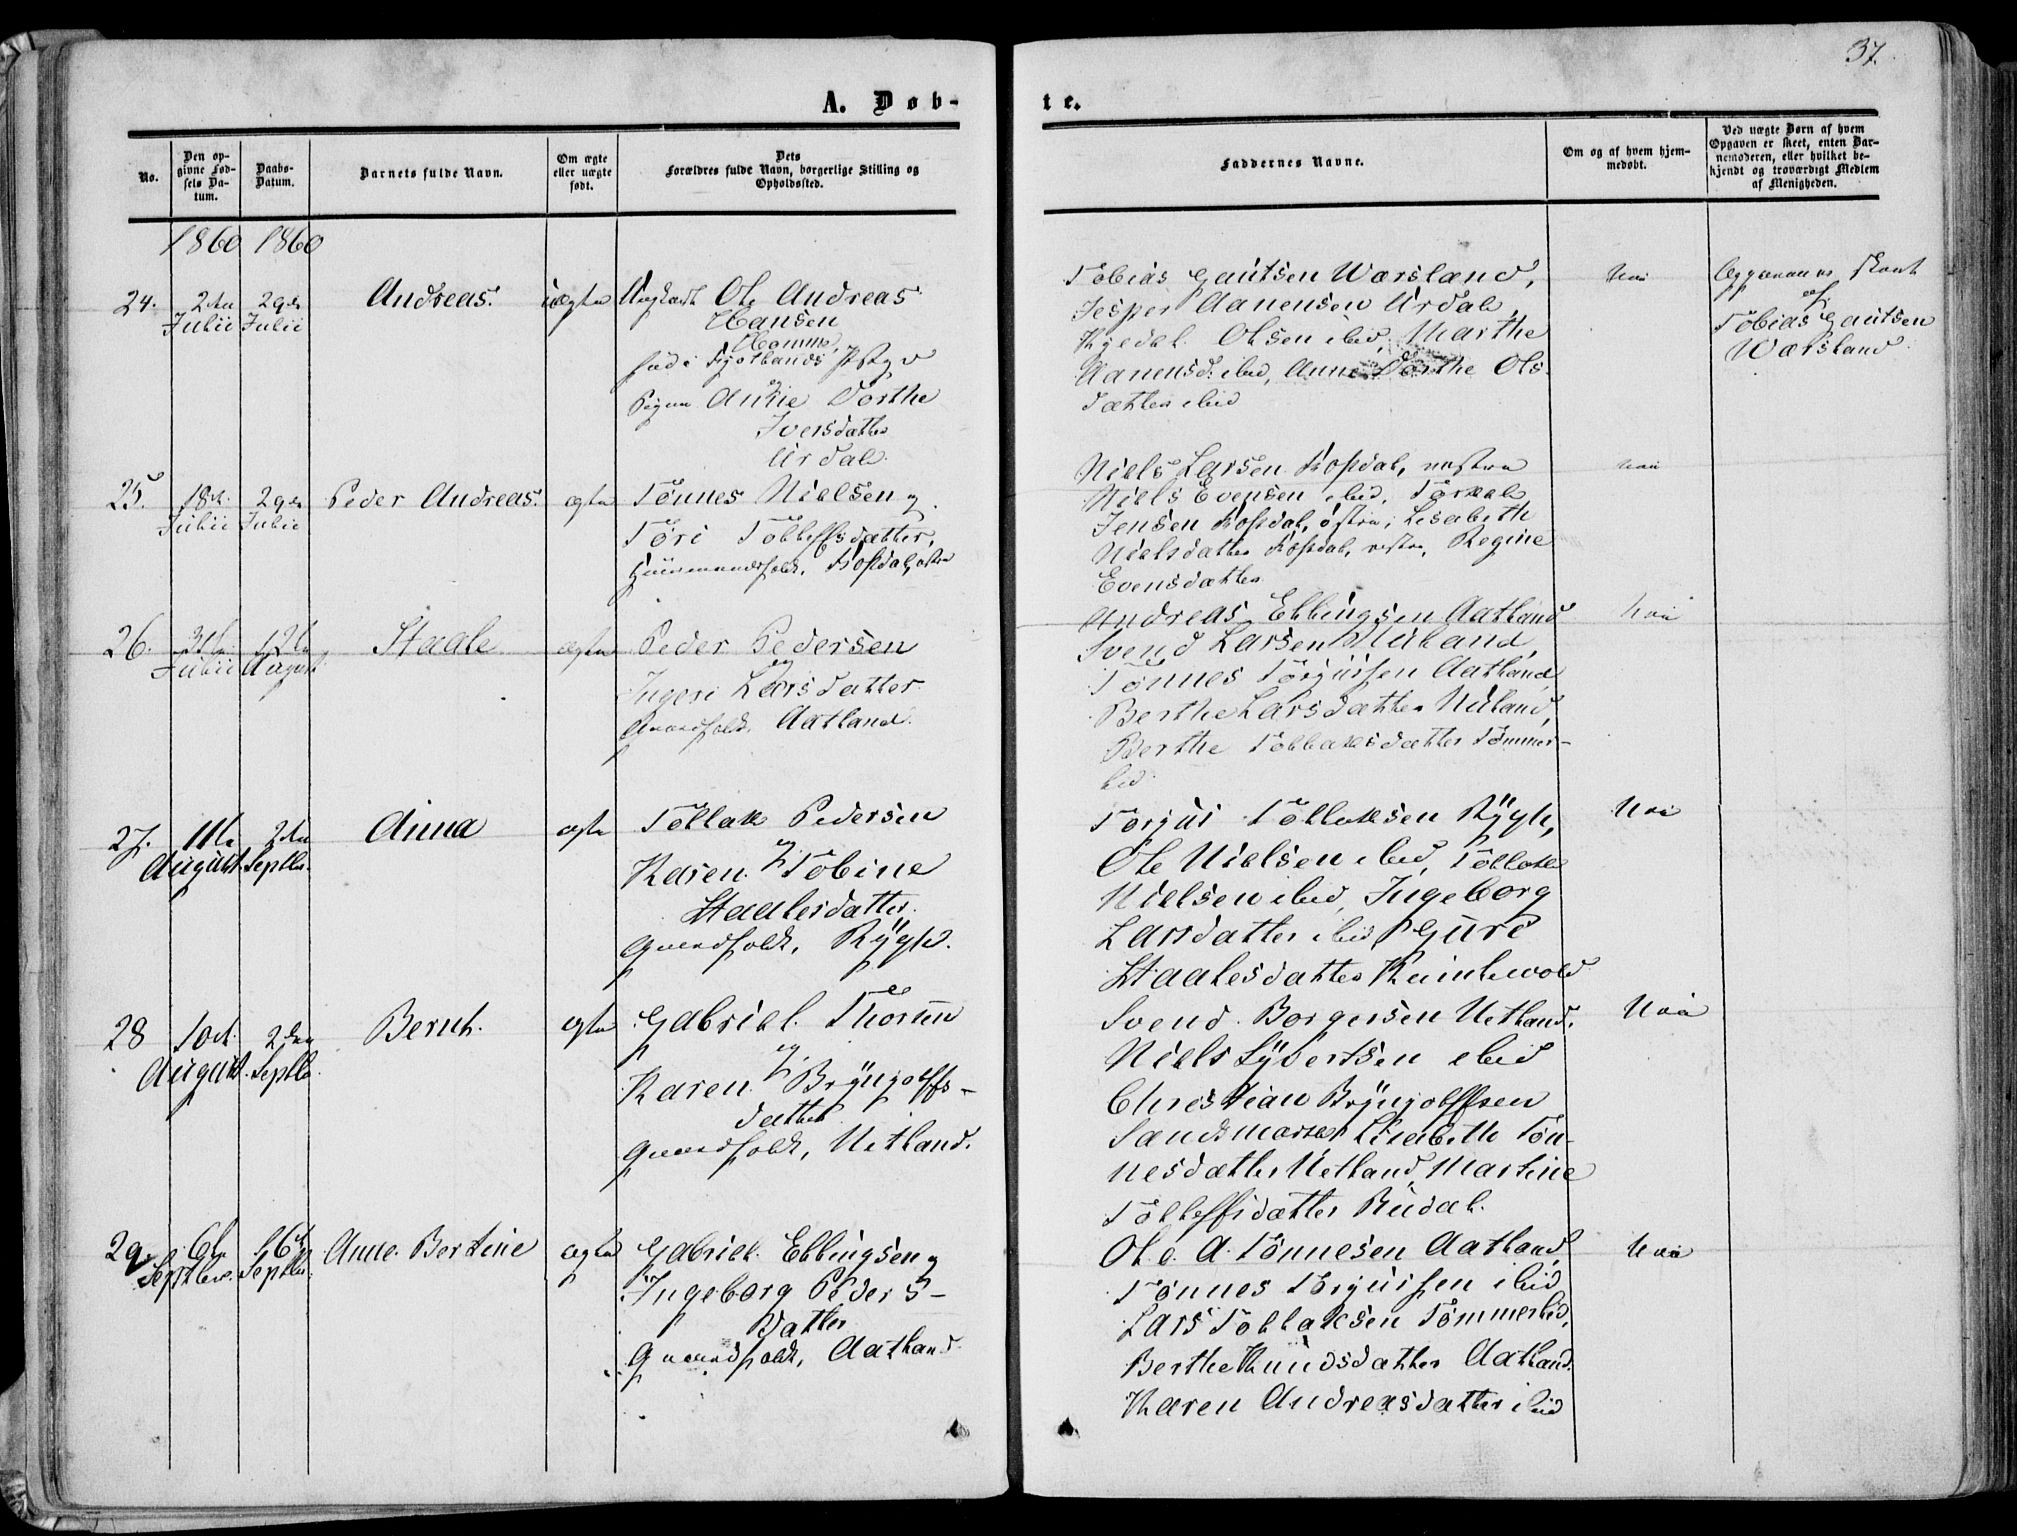 37.
A. Døb-
te.
No.
Den op-
givne Fød-
sels Da-
tum.
Daabs-
Datum.
Barnets fulde Navn.
Om ægte
eller uægte
født.
Dets
Forældres fulde Navn, borgerlige Stilling og
Opholdssted.
Faddernes Navne.
Om og af hvem hjem-
medøbt.
Ved uægte Børn af hvem
Opgaven er skeet, enten Bar-
nemoderen, eller hvilket be-
kjendt og troværdigt Medlem
af Menigheden.
1860 1860
24.
2den
Julii
29de
Julii
Andreas.
uægte
Ungkarl Ole Andreas
Hansen
Homme,
og
Pigen Anne Dorthe
Iversdatter
Urdal.
Tobias Gautsen Wærsland,
Jesper Aanensen Urdal,
Olsen ibid, Marthe
Aanensd. ibid, Anne Dorthe Ols-
datter ibid
Nei
af
Tobias Gautsen
Wærsland.
25.
18de
Julii
29de
Julii
Peder Andreas.
ægte
Tönnes Nielsen og
Töri Tölleffsdatter,
Huusmandsfolk, Rosdal, østre
Niels Larsen Rosdal, vestre
Niels Evensen ibid, Törkel
Jensen Rosdal, östre, Lisabeth
Nielsdatter Rosdal, vestre, Regine
Evensdatter
Nei
26.
31te
Julii
12te
August
Staale
ægte
Peder Pedersen
og
Ingeri Larsdatter
Gaardfolk, Aatland.
Andreas Ellingsen Aatland
Svend Larsen Nuland,
Tönnes Törgursen Aatland
Berthe Larsdatter Nuland,
Berthe Tollaksdatter Tömmer-
lid
Nei
27.
11te
August
2den
Septbr.
Anna
ægte
Töllak Pedersen
og
Karen Tobine
Staalesdatter
Gaardfolk, Rÿgh.
Torjus Töllaksen Rÿgh,
Ole Nielsen ibid, Töllak
Nielsen ibid, Ingeborg
Larsdatter ibid, Guri
Staalesdatter
Nei
28
10de
August
2den
Septbr.
Bernt.
ægte
Gabriel
og
Karen Brÿnjolffs-
datter
Gaardfolk, Uetland.
Svend Börgersen Uetland.
Niels Sÿvertsen ibid
Christian Brÿnjolffsen
Lisabeth Tön-
nesdatter Uetland, Martine
Tölleffsdatter Rudal.
Nei
29.
6te
Septbr.
16de
Septbr.
Anne Bertine
ægte
Gabriel Ellingsen og
Ingeborg Peders-
datter
Gaardfolk, Aatland.
Ole A. Tönnesen Aatland,
Tönnes Törgursen ibid
Lars Töllaksen Tömmerlid,
Berthe Knudsdatter Aatland.
Karen Andreasdatter ibid
Nei